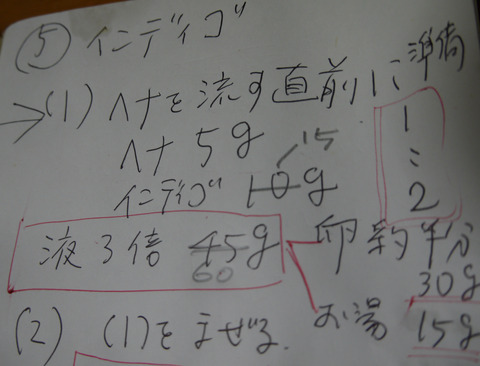 ⑤ インディゴ
→(1) ヘナを流す直前に準備
ヘナ 5g
15
インディゴ 10g
1
:
2
液3倍 45g
60
卵約半分
30g
(2) (1)をまぜる.
お湯 15g